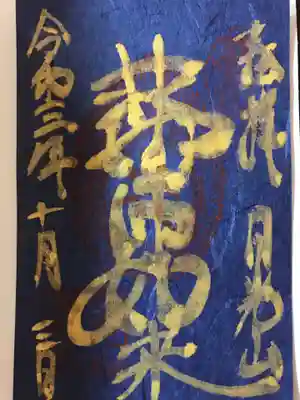 奉拝 日光山
薬師如来
令和三年十月三日